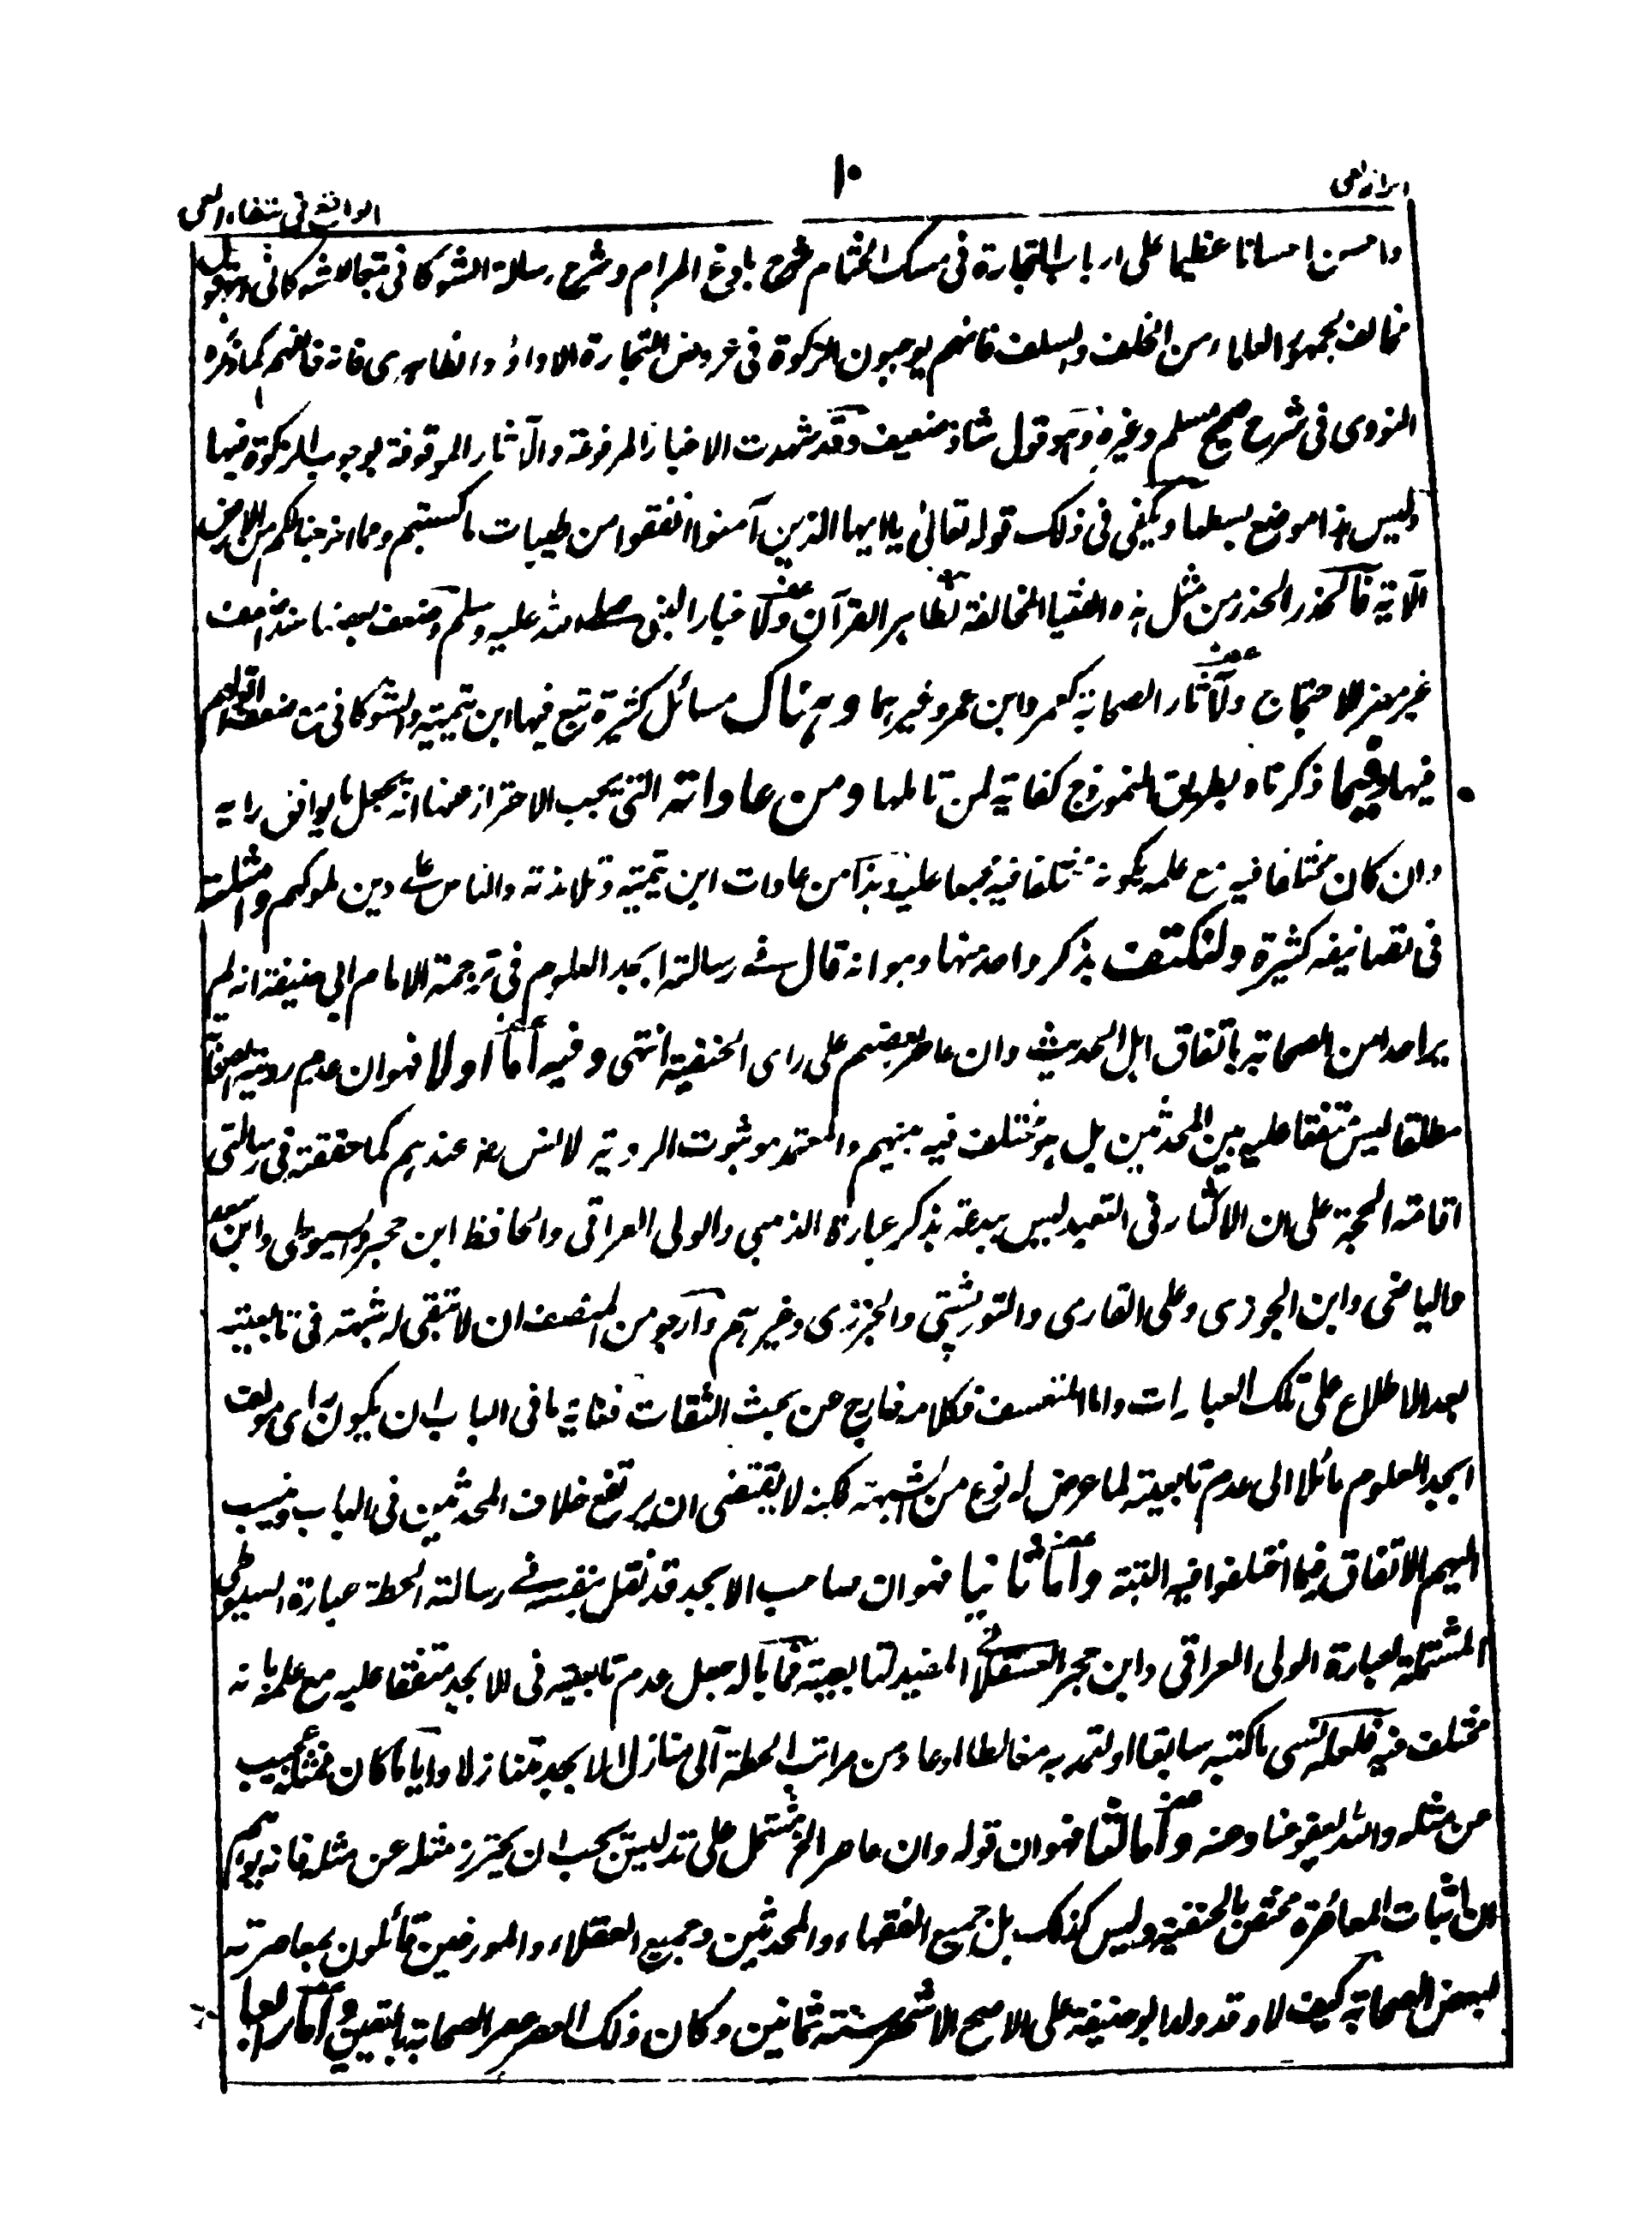 ابراز الغي
١٠
الواقع في شفاء العي
واحسن احسانا عظيما على ارباب التجارة في مسك الختام شرح بلوغ المرام وشرح رسالة الشوكاني تبعا للشوكاني وهو قول
مخالف لجمهور العلماء من الخلف والسلف فانهم يوجبون الزكوة في عروض التجارة الا داؤد الظاهري فانه خالفهم كما ذكره
النووي في شرح صحيح مسلم وغيره وهو قول شاذ ضعيف وقد شهدت الاخبار المرفوعة والآثار الموقوفة بوجوب الزكوة فيها
وليس هذا موضع بسطها ويكفي في ذلك قوله تعالى يا ايها الذين آمنوا انفقوا من طيبات ما كسبتم ومما اخرجنا لكم من الارض
الآية فالحذر الحذر من مثل هذه الفتيا المخالفة لظاهر القرآن ولاخبار النبي صلى الله عليه وسلم وضعف بعضها سندا ضعف
غير مضر للاحتجاج ولآثار الصحابة كعمر وابن عمر وغيرهما وهناك مسائل كثيرة تبع فيها ابن تيمية والشوكاني مع ضعف اقوالهم
فيها وفيما ذكرناه بطريق النموذج كفاية لمن تاملها ومن عاداته التي يجب الاحتراز عنها انه يجعل ما يوافق رايه
وان كان مختلفا فيه مع علمه بكونه مختلفا فيه مجمعا عليه وهذا من عادات ابن تيمية وتلامذته والناس على دين ملوكهم وامثلته
في تصانيفه كثيرة ولنكتف بذكر واحد منها وهو انه قال في رسالته ابجد العلوم في ترجمة الامام ابي حنيفة انه لم
ير احدا من الصحابة باتفاق اهل الحديث وان عاصر بعضهم على راى الحنفية انتهى وفيه اما اولا فهو ان عدم رويته الصحابة
مطلقا ليس متفقا عليه بين المحدثين بل هو مختلف فيه بينهم والمعتمد هو ثبوت الروية لانس رض عندهم كما حققته في رسالتي
اقامة الحجة على ان الاكثار في التعبد ليس ببدعة بذكر عبارة الذهبي والولي العراقي والحافظ ابن حجر والسيوطي وابن سعد
واليافعي وابن الجوزي وعلي القاري والتورپشتي والجزري وغيرهم وارجو من المنصف ان لا تبقى له شبهة في تابعيته
بعد الاطلاع على تلك العبارات واما المتعسف فكلامه خارج عن بحث الثقات فغاية ما في الباب ان يكون راى مولف
ابجد العلوم مائلا الى عدم تابعيته لما عرض له نوع من الشبهة لكنه لا يقتضي ان يرتفع خلاف المحدثين في الباب وينسب
اليهم الاتفاق فيما اختلفوا فيه البتة واما ثانيا فهو ان صاحب الابجد قد نقل بنفسه في رسالته الحطة عبارة السيوطي
المشتملة لعبارة الولي العراقي وابن حجر العسقلاني المفيد لتابعيته فما باله جعل عدم تابعيته في الابجد متفقا عليه مع علمه بانه
مختلف فيه فلعله نسي ما كتبه سابقا او لتعمد به مغالطا او عاد من مراتب الحطة الى منازل الابجد متنازلا وايا ما كان فمثله عجيب
من مثله والله يعفو عنا وعنه واما ثالثا فهو ان قوله وان عاصر الخ مشتمل على تدليس يجب ان يحترز مثله عن مثله فانه يوهم
ان اثبات المعاصرة مختص بالحنفية وليس كذلك بل جميع الفقهاء والمحدثين وجميع العقلاء والمورخين قائلون بمعاصرته
لبعض الصحابة كيف لا وقد ولد ابو حنيفة على الاصح الاشهر سنة ثمانين وكان ذلك العصر عصر الصحابة باليقين واما رابعا